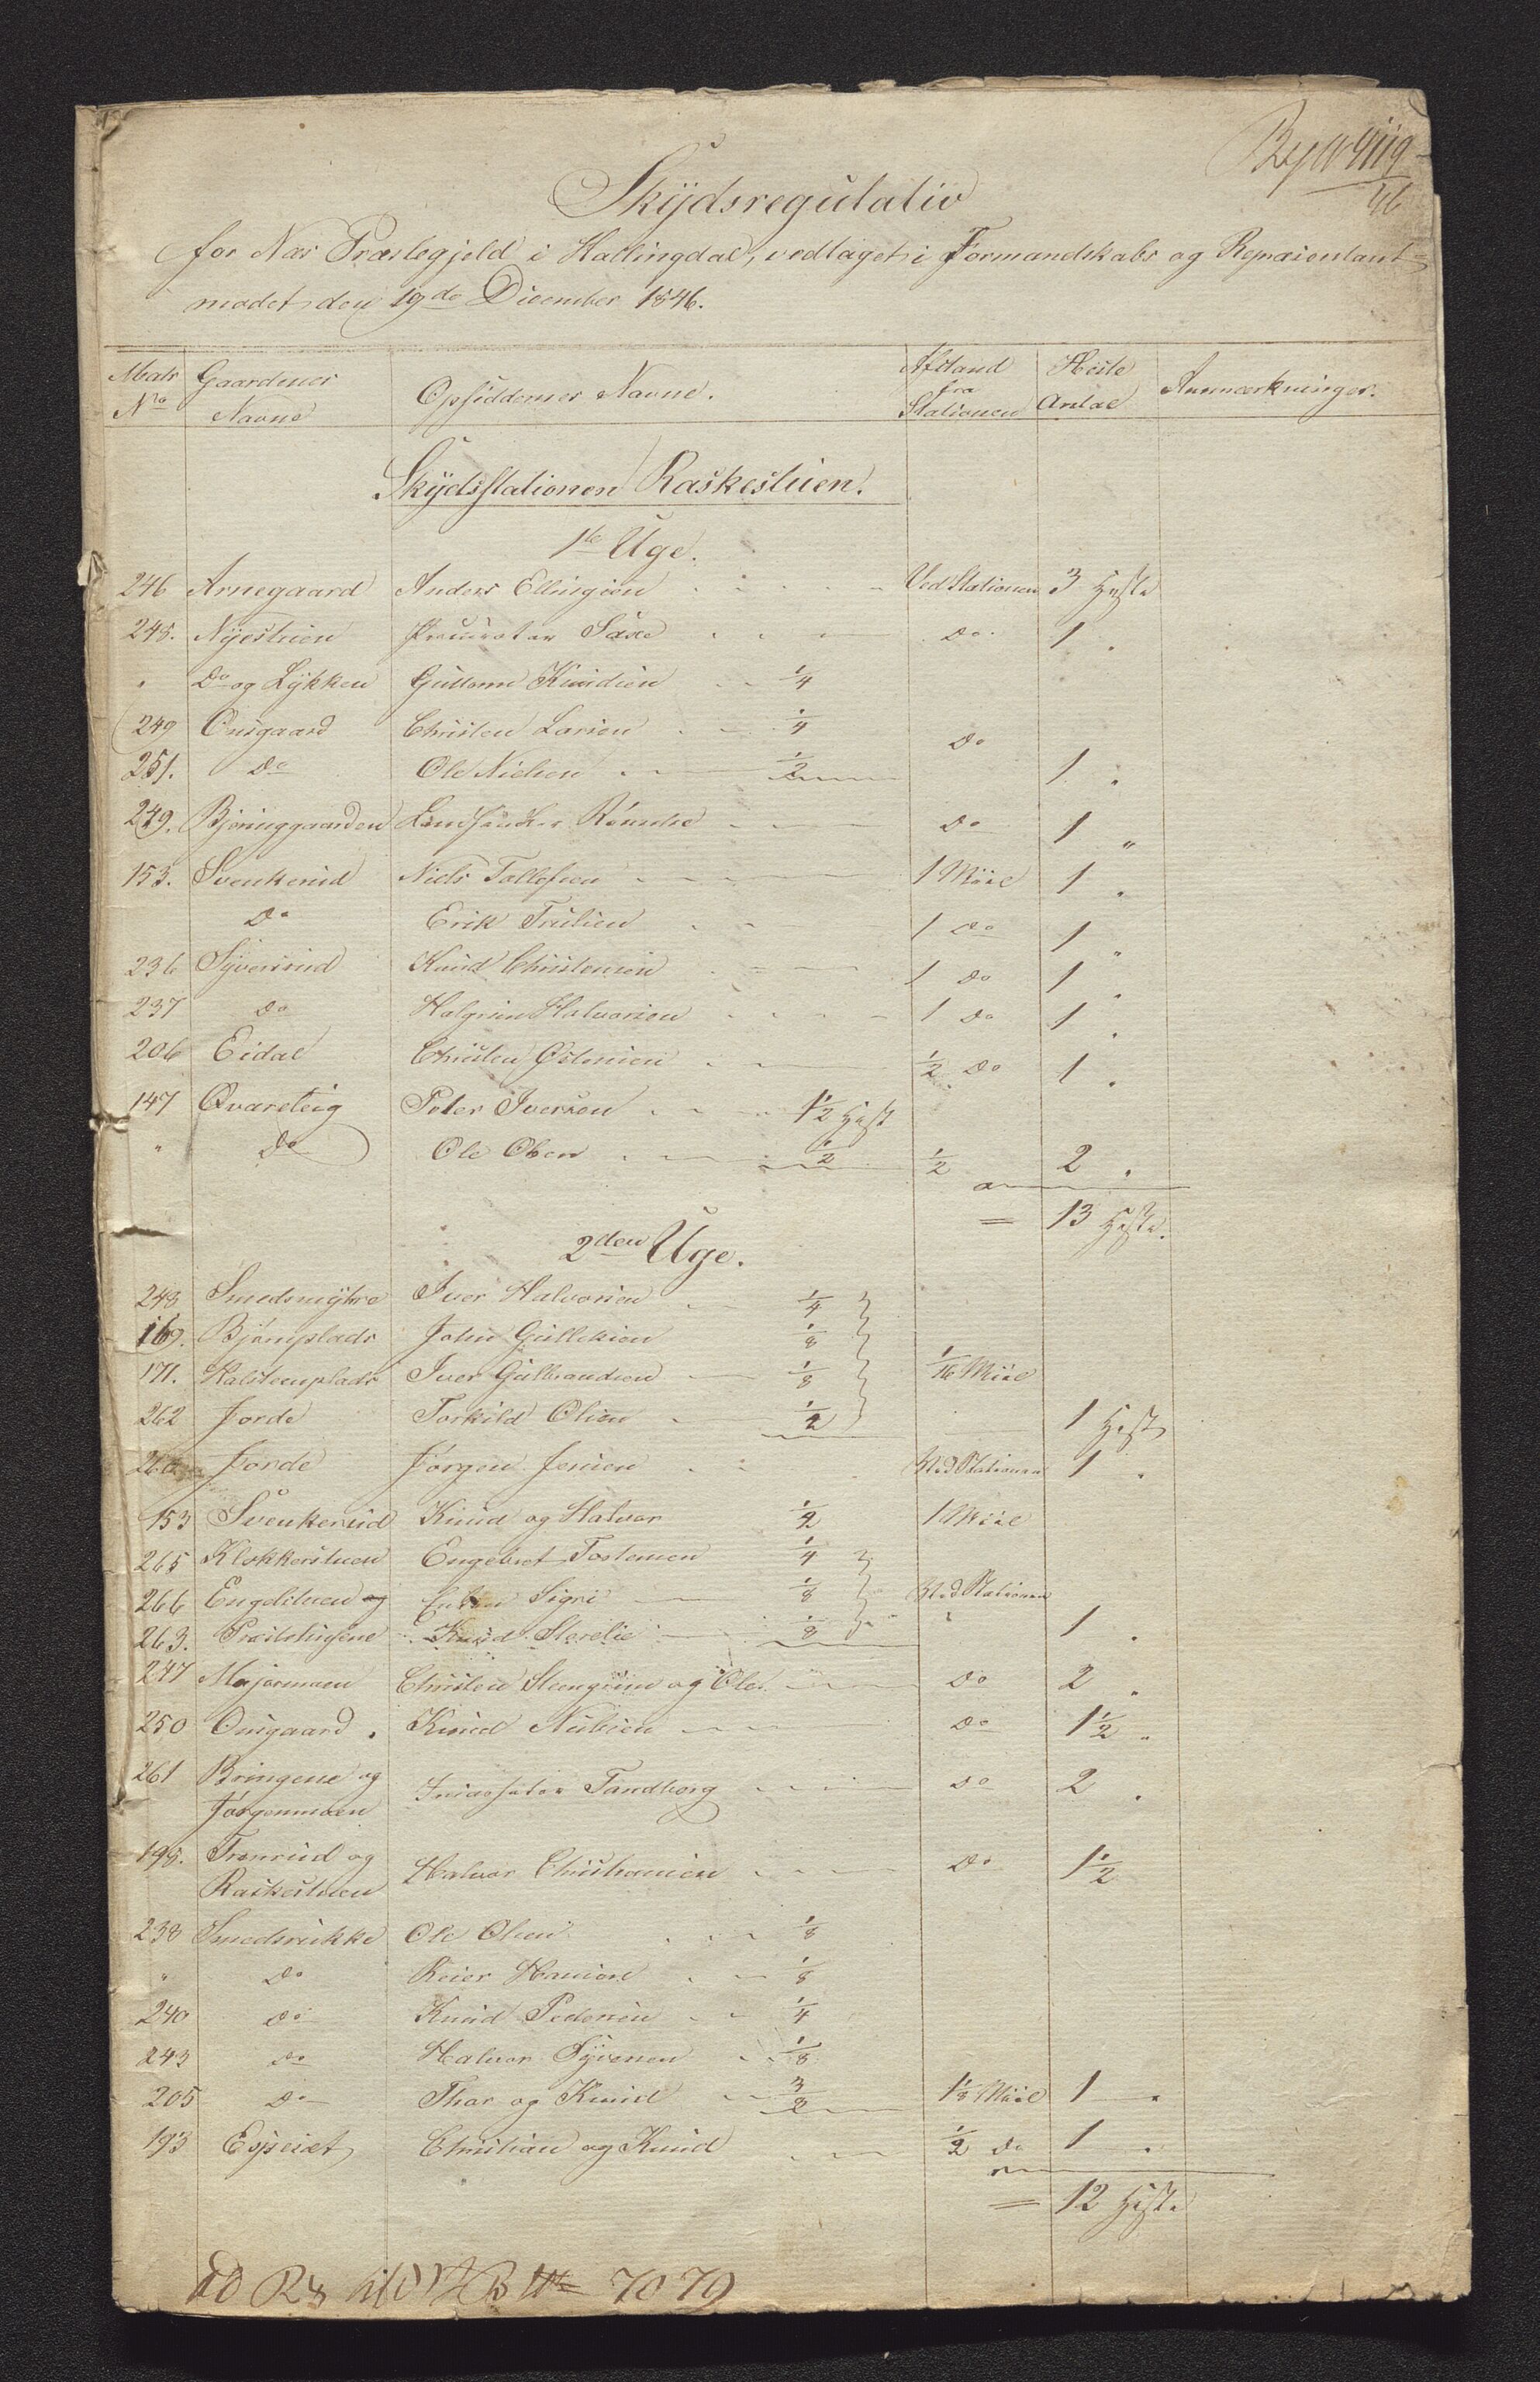 Skÿdsregulativ
for Næs Præstegjeld i Hallingdal, vedtaget i Formandskabs og Repræsentant=
mødet den 19de December 1846.
Matr No Gaardenes Navne Opsiddernes Navne. Afstand fra Stationen Heste Antal Anmærkninger.
Skÿdsstationen Raskestuen.
1te Uge.
246 Arnegaard Anders Ellingsen Ved Stationen 3 Heste
245. Nÿestuen Procurator Saxe do 1 "
" Do og Lÿkken Guttorm Knudsen 1/4
249 Onsgaard Christen Larsen 1/4
251. do Ole Nielsen 1/2 do 1 "
249. Bjøringgaarden do 1 "
153. Svenkerud Niels Tollefsen 1 Miil 1 "
do Erik Trulsen 1 do 1 "
236 Sÿversrud Knud Christensen 1 do 1 "
237 do Halgrim Halvorsen 1 do 1 "
206 Eidal Christen Østensen 1/2 do 1 "
147 Qvareteig Peter Iversen 1 1/2 Hest
" do Ole Olsen 1/2 1/2 2 "
= 13 Heste.
2den Uge.
248 Smedsmÿhre Iver Halvorsen 1/4
169. Bjørnplads John Gulleksen 1/8
171. Halsteenplads Iver Gulbrandsen 1/8 1/16 Miil
262 Jorde Torkild Olsen 1/2 1 Hest
Jorde Jørgen Jensen Ved Stationen 1 "
153 Svenkerud Knud og Halvor 1/2 1 Miil
265 Klokkerstuen Engebret Tostensen 1/4
266 Engelstuen og Enken Sigri 1/8 Ved Stationen
263. Præstehusene Knud Sterelie 1/8 " 1 "
247 Majormoen Christen Steengrim og Ole do 2 "
250 Onsgaard. Knud Nielsen do 1 1/2 "
261 Bringene og
Jørgenmoen Tandberg do 2 "
195. Tronrud og
Raskestuen Halvor Christiansen do 1 1/2
238 Smedsrukke Ole Olsen 1/8
" do Reier Hansen 1/8
240 do Knud Pedersen 1/4
243 do Halvor Sÿversen 1/8
205 do Thor og Knud 3/8 1 1/8 Miil 1 "
193 Espeset Christian og Knud 1/2 do 1 "
= 12 Heste
7079